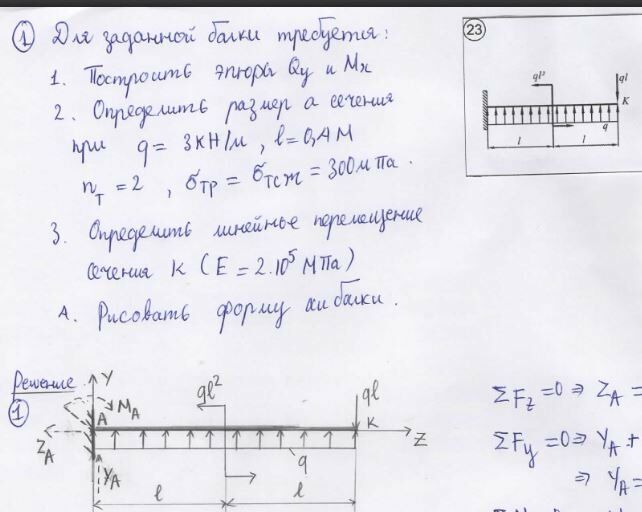 ① Для заданной балки требуется:
1. Построить эпюры Qy и Mx
2. Определить размер a сечения
при q = 3кН/м, l = 0,4м
nт = 2, σтр = σтсж = 300мПа.
3. Определить линейные перемещение
сечения K (E = 2.10⁵ МПа)
4. Рисовать форму
балки.
23
ql²
ql
K
q
l
l
Решение
①
Y
A
MA
ZA
YA
ql²
ql
K
Z
q
l
l
ΣFz = 0 ⇒ ZA =
ΣFy = 0 ⇒ YA +
⇒ YA =